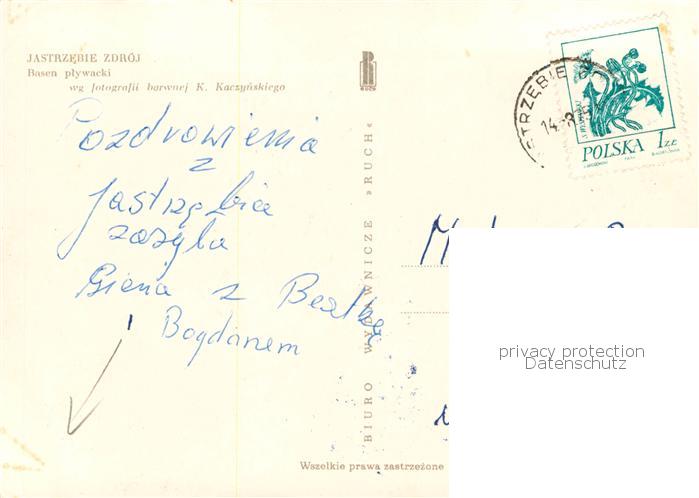 JASTRZĘBIE ZDRÓJ
Basen pływacki
wg fotografii barwnej K. Kaczyńskiego
Pozdrowienia
z
Jastrzębia
zasyła
Giena z Beatką
i Bogdanem
BIURO WYDAWNICZE »RUCH«
RUCH
Wszelkie prawa zastrzeżone
STRZĘBIE
14.-8
POLSKA 1 ZŁ
privacy protection
Datenschutz